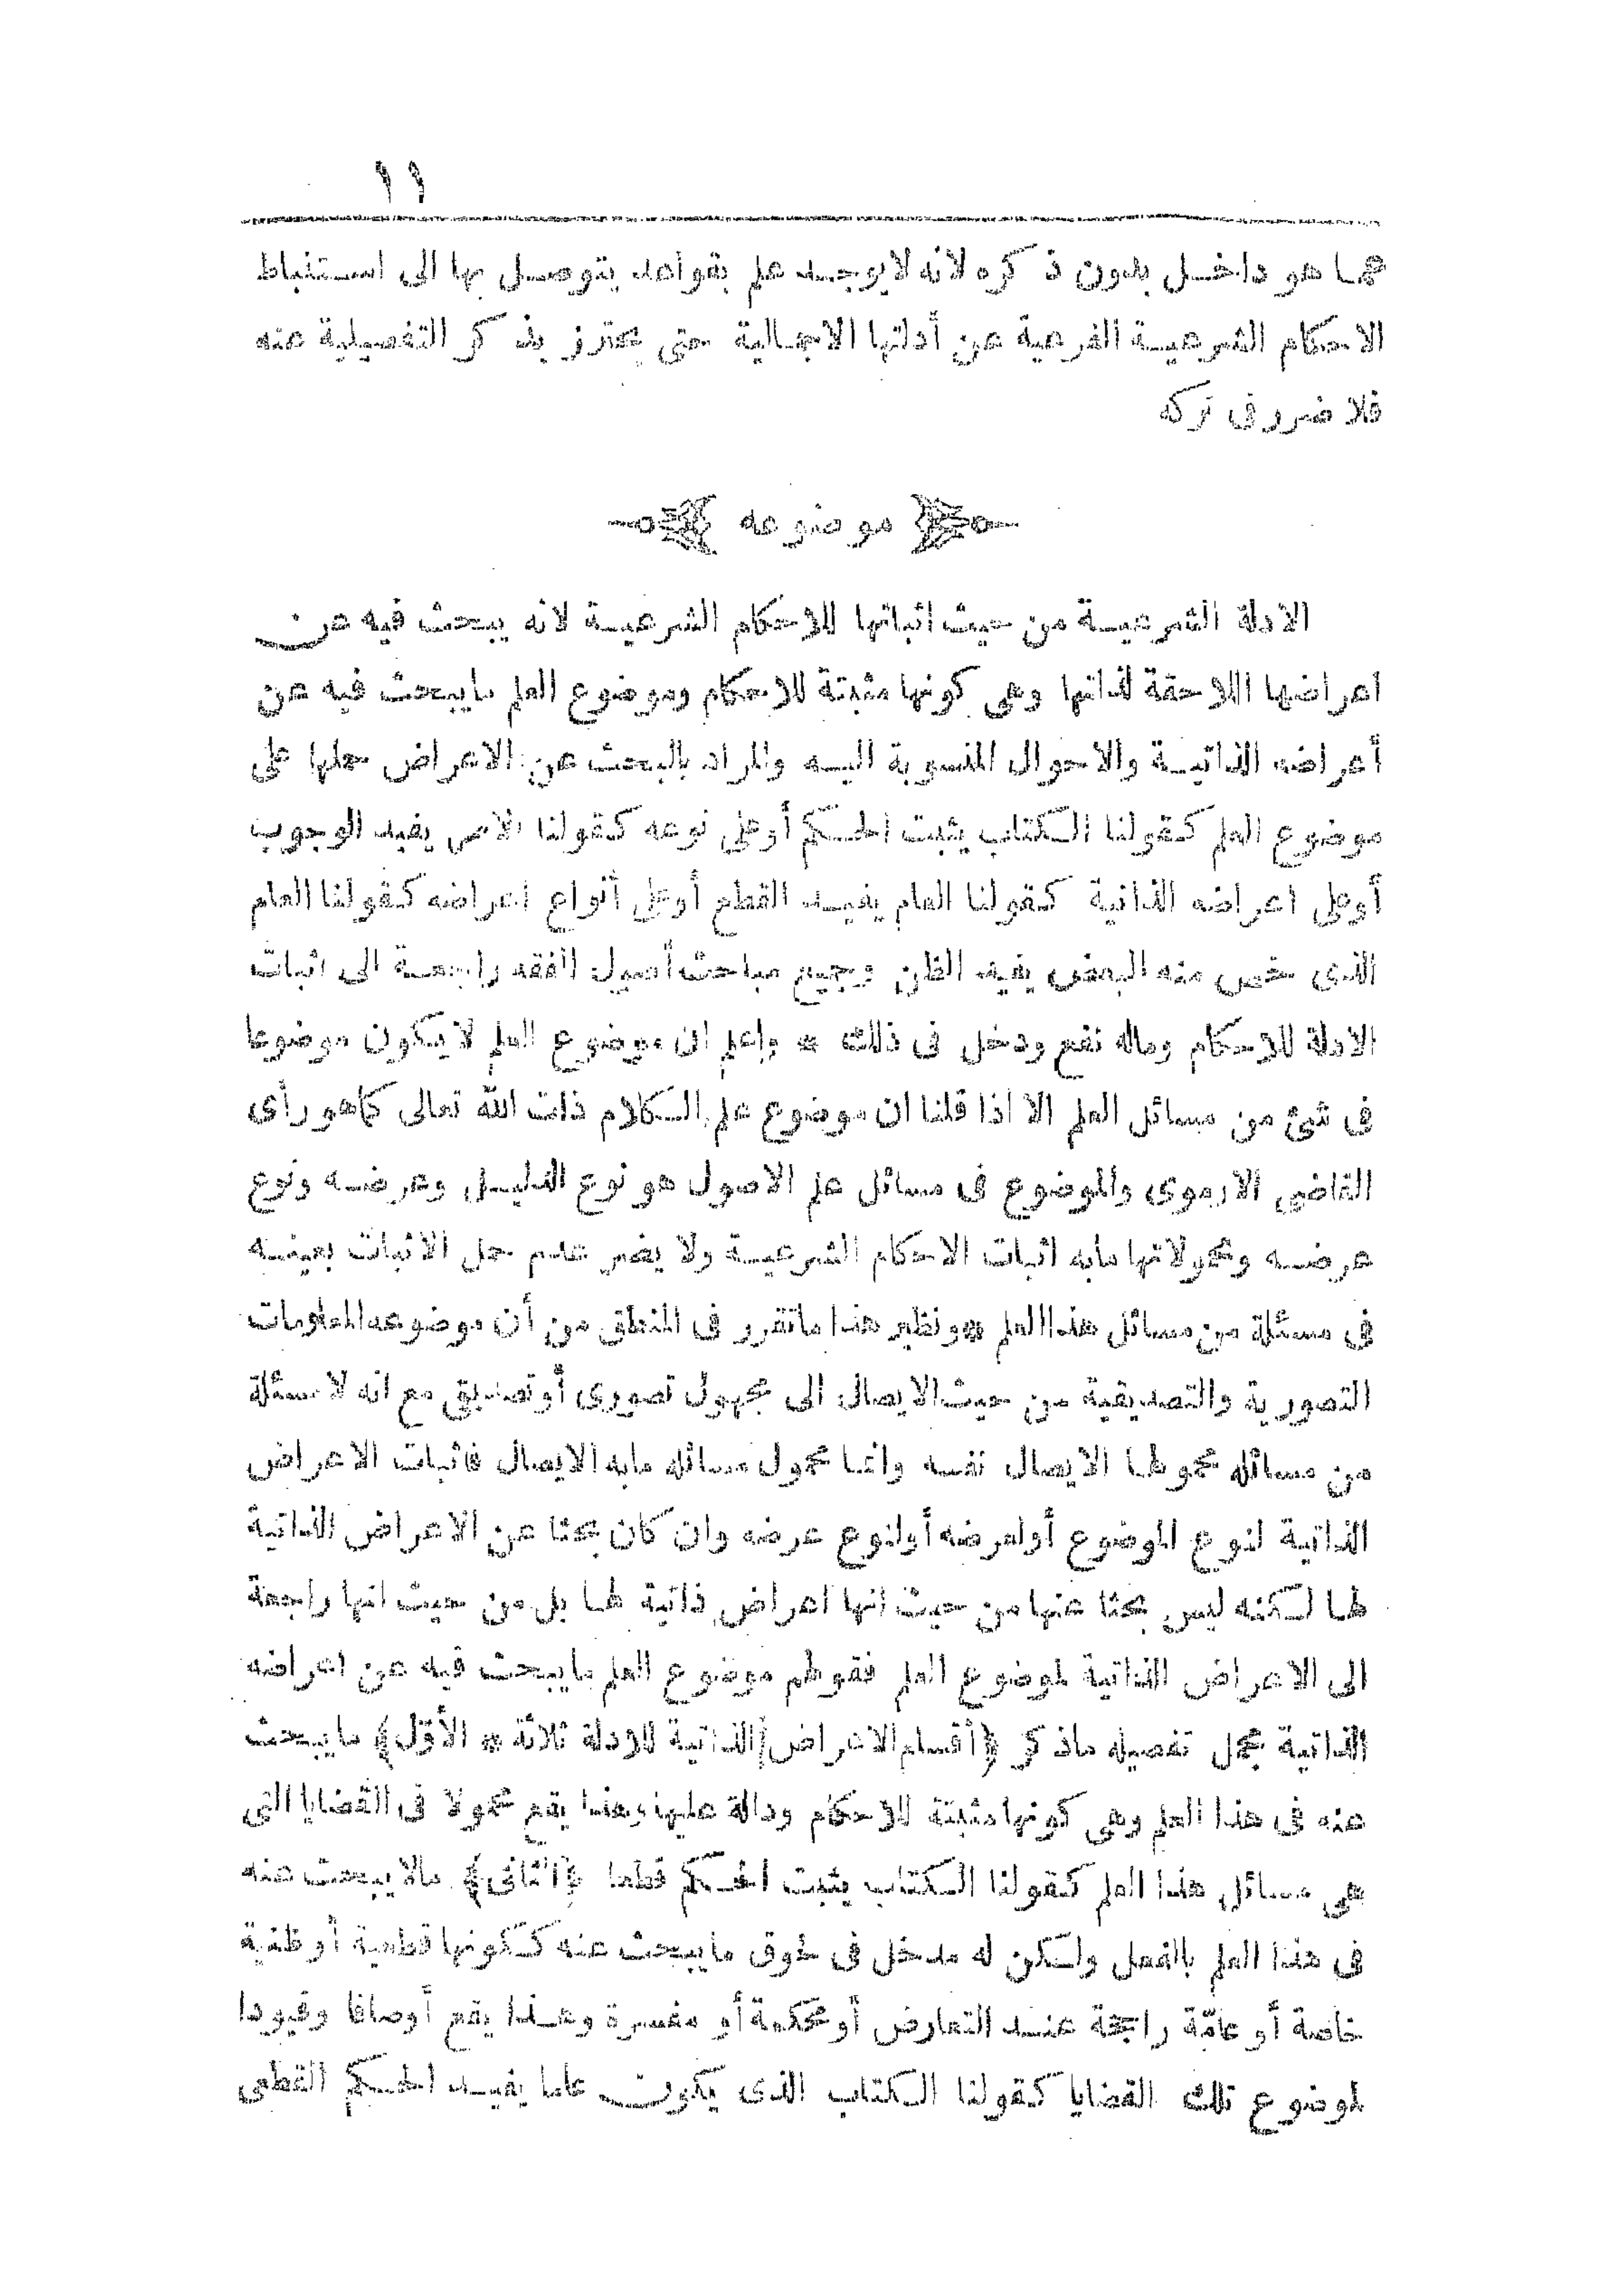 ١١
مما هو داخل بدون ذكره لانه لا يوجد علم بقواعد يتوصل بها الى استنباط
الاحكام الشرعية الفرعية عن أدلتها الاجمالية حتى يحترز بذكر التفصيلية عنه
فلا ضرر فى تركه
موضوعه
الادلة الشرعية من حيث اثباتها للاحكام الشرعية لانه يبحث فيه عن
اعراضها اللاحقة لذاتها وهى كونها مثبتة للاحكام وموضوع العلم ما يبحث فيه عن
أعراضه الذاتية والاحوال المنسوبة اليه والمراد بالبحث عن الاعراض حملها على
موضوع العلم كقولنا الكتاب يثبت الحكم أو على نوعه كقولنا الامر يفيد الوجوب
أو على اعراضه الذاتية كقولنا العام يفيد القطع أو على أنواع اعراضه كقولنا العام
الذى خص منه البعض يفيد الظن وجميع مباحث أصول الفقه راجعة الى اثبات
الادلة للاحكام وماله نفع ودخل فى ذلك * واعلم ان موضوع العلم لا يكون موضوعا
فى شئ من مسائل العلم الا اذا قلنا ان موضوع علم الكلام ذات الله تعالى كما هو رأى
القاضى الارموى والموضوع فى مسائل علم الاصول هو نوع الدليل وعرضه ونوع
عرضه ومحمولاتها مابه اثبات الاحكام الشرعية ولا يضر عدم حمل الاثبات بعينه
فى مسئلة من مسائل هذا العلم * ونظير هذا ما تقرر فى المنطق من أن موضوعه المعلومات
التصورية والتصديقية من حيث الايصال الى مجهول تصورى أو تصديقى مع انه لا مسئلة
من مسائله محمولها الايصال نفسه وانما محمول مسائله مابه الايصال فاثبات الاعراض
الذاتية لنوع الموضوع أو لعرضه أو لنوع عرضه وان كان بحثا عن الاعراض الذاتية
لها لكنه ليس بحثا عنها من حيث انها اعراض ذاتية لها بل من حيث انها راجعة
الى الاعراض الذاتية لموضوع العلم فقولهم موضوع العلم ما يبحث فيه عن اعراضه
الذاتية مجمل تفصيله ما ذكر ﴿أقسام الاعراض﴾ الذاتية للادلة ثلاثة * الأوّل﴾ ما يبحث
عنه فى هذا العلم وهى كونها مثبتة للاحكام ودالة عليها وهذا يقع محمولا فى القضايا التى
هى مسائل هذا العلم كقولنا الكتاب يثبت الحكم قطعا ﴿الثانى﴾ مالا يبحث عنه
فى هذا العلم بالفعل ولكن له مدخل فى لحوق ما يبحث عنه ككونها قطعية أو ظنية
خاصة أو عامّة راجحة عند التعارض أو محكمة أو مفسرة وهذا يقع أوصافا وقيودا
لموضوع تلك القضايا كقولنا الكتاب الذى يكون عاما يفيد الحكم القطعى